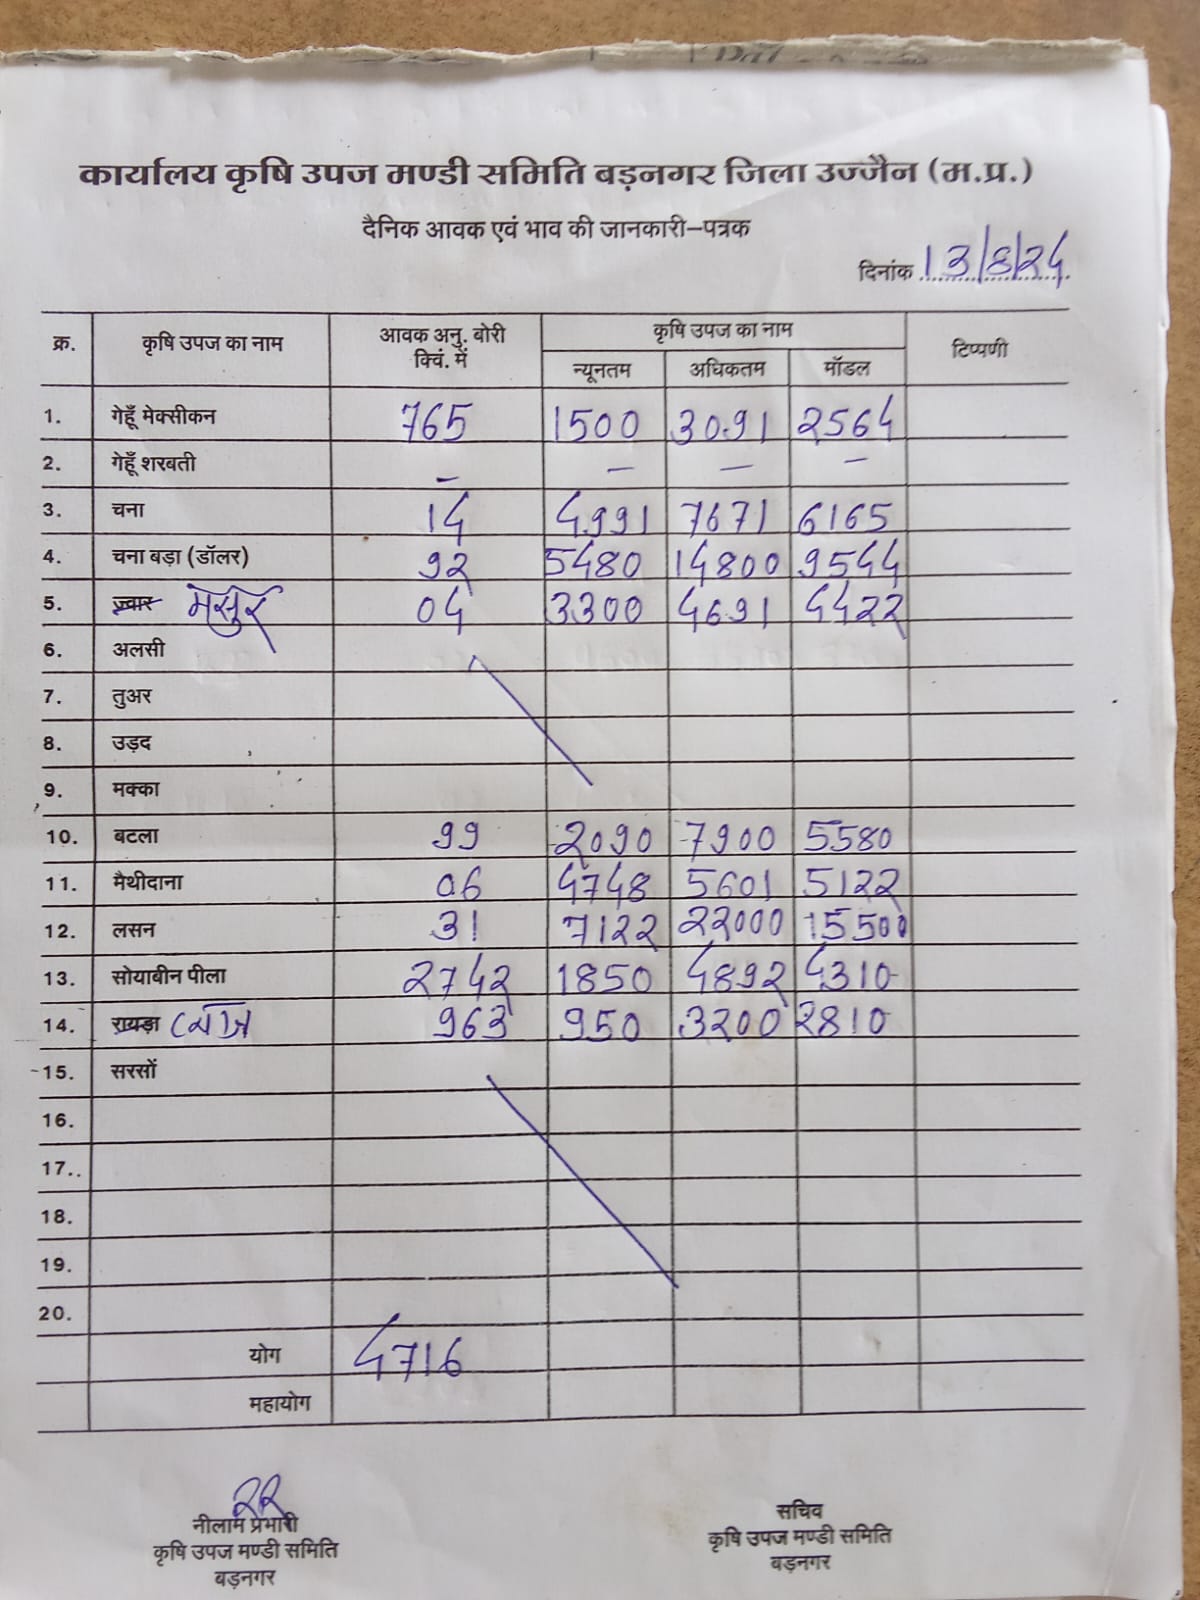 कार्यालय कृषि उपज मण्डी समिति बड़नगर जिला उज्जैन (म.प्र.)
दैनिक आवक एवं भाव की जानकारी-पत्रक
दिनांक 13/8/24
क्र. कृषि उपज का नाम आवक अनु. बोरी क्विं. में कृषि उपज का नाम टिप्पणी
न्यूनतम अधिकतम मॉडल
1. गेहूँ मेक्सीकन 765 1500 3091 2564
2. गेहूँ शरबती – – – –
3. चना 14 4991 7671 6165
4. चना बड़ा (डॉलर) 92 5480 14800 9544
5. ज्वार मसुर 04 3300 4691 4422
6. अलसी
7. तुअर
8. उड़द
9. मक्का
10. बटला 99 2090 7900 5580
11. मैथीदाना 06 4748 5601 5122
12. लसन 31 7122 22000 15500
13. सोयाबीन पीला 2742 1850 4892 4310
14. रायड़ा प्याज 963 950 3200 2810
15. सरसों
16.
17..
18.
19.
20.
योग 4716
महायोग
नीलाम प्रभारी
कृषि उपज मण्डी समिति
बड़नगर
सचिव
कृषि उपज मण्डी समिति
बड़नगर